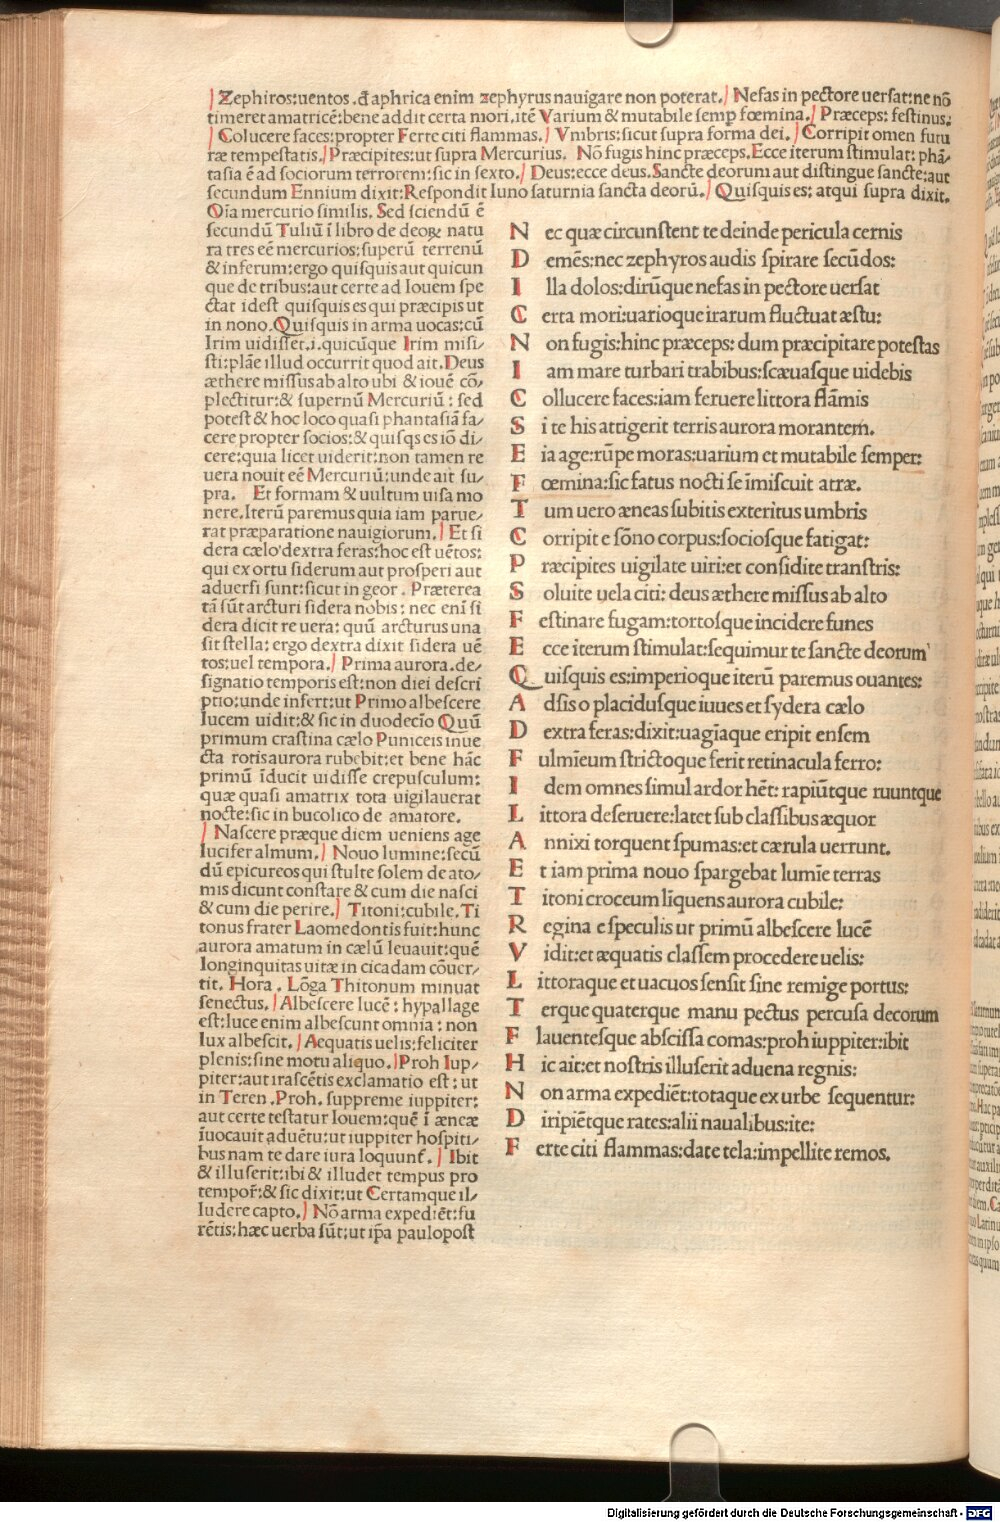 Zephiros:uentos.d̄ aphrica enim zephyrus nauigare non poterat. Nefas in pectore uersat:ne nō
timeret amatricē:bene addit certa mori.itē Varium & mutabile semp fœmina. Præceps: festinus.
Colucere faces:propter Ferte citi flammas. Vmbris: sicut supra forma dei. Corripit omen futu
ræ tempestatis. Præcipites:ut supra Mercurius. Nō fugis hinc præceps. Ecce iterum stimulat: phā/
tasia ē ad sociorum terrorem:sic in sexto. Deus:ecce deus. Sancte deorum aut distingue sancte:aut
secundum Ennium dixit:Respondit Iuno saturnia sancta deorū. Quisquis es: atqui supra dixit.
Oīa mercurio similis. Sed sciendū ē
secundū Tuliū ī libro de deoꝝ natu
ra tres eē mercurios:superū terrenū
& inferum:ergo quisquis aut quicun
que de tribus:aut certe ad Iouem spe
ctat idest quisquis es qui præcipis ut
in nono.Quisquis in arma uocas:cū
Irim uidisset.i.quicūque Irim misi/
sti:plāe illud occurrit quod ait.Deus
æthere missus ab alto ubi & iouē cō/
plectitur:& supernū Mercuriū: sed
potest & hoc loco quasi phantasiā fa/
cere propter socios:& quisqs es iō di/
cere:quia licet uiderit:non tamen re
uera nouit eē Mercuriū:unde ait su/
pra. Et formam & uultum uisa mo
nere.Iterū paremus quia iam parue/
rat præparatione nauigiorum. Et si
dera cælo'dextra feras:hoc est uētos:
qui ex ortu siderum aut prosperi aut
aduersi sunt:sicut in geor. Præterea
tā sūt arcturi sidera nobis: nec enī si
dera dicit re uera: quū arcturus una
sit stella: ergo dextra dixit sidera uē
tos:uel tempora. Prima aurora.de/
signatio temporis est:non diei descri
ptio:unde infert:ut Primo albescere
lucem uidit:& sic in duodecīo Quū
primum crastina cælo Puniceis inue
cta rotis aurora rubebit:et bene hāc
primū īducit uidisse crepusculum:
quæ quasi amatrix tota uigilauerat
nocte:sic in bucolico de amatore.
Nascere præque diem ueniens age
lucifer almum. Nouo lumine:secū
dū epicureos qui stulte solem de ato/
mis dicunt constare & cum die nasci
& cum die perire. Titoni:cubile.Ti
tonus frater Laomedontis fuit:hunc
aurora amatum in cælū leuauit:quē
longinquitas uitæ in cicadam cōuer/
tit. Hora. Lōga Thitonum minuat
senectus. Albescere lucē: hypallage
est:luce enim albescunt omnia: non
lux albescit. Aequatis uelis:feliciter
plenis:sine motu aliquo. Proh Iup/
piter:aut irascētis exclamatio est: ut
in Teren.Proh.suppreme iuppiter:
aut certe testatur Iouem:quē ī æneæ
īuocauit aduētu:ut iuppiter hospiti/
bus nam te dare iura loquunt̄. Ibit
& illuserit:ibi & illudet tempus pro
tempor̄:& sic dixit:ut Certamque il/
ludere capto. Nō arma expediēt:fu
rētis:hæc uerba sūt:ut ip̄a paulopost
N ec quæ circunstent te deinde pericula cernis
D emēs:nec zephyros audis spirare secūdos:
I lla dolos:dirūque nefas in pectore uersat
C erta mori:uarioque irarum fluctuat æstu:
N on fugis:hinc præceps: dum præcipitare potestas
I am mare turbari trabibus:scæuasque uidebis
C ollucere faces:iam feruere littora flāmis
S i te his attigerit terris aurora morantem.
E ia age:rūpe moras:uarium et mutabile semper:
F œmina:sic fatus nocti se īmiscuit atræ.
T um uero æneas subitis exteritus umbris
C orripit e sōno corpus:sociosque fatigat:
P ræcipites uigilate uiri:et considite transtris:
S oluite uela citi: deus æthere missus ab alto
F estinare fugam:tortosque incidere funes
E cce iterum stimulat:sequimur te sancte deorum
Q uisquis es:imperioque iterū paremus ouantes:
A dsis o placidusque iuues et sydera cælo
D extra feras:dixit:uagīaque eripit ensem
F ulmīeum strictoque ferit retinacula ferro:
I dem omnes simul ardor hēt: rapiūtque ruuntque
L ittora deseruere:latet sub classibus æquor
A nnixi torquent spumas:et cærula uerrunt.
E t iam prima nouo spargebat lumīe terras
T itoni croceum līquens aurora cubile:
R egina e speculis ut primū albescere lucē
V idit:et æquatis classem procedere uelis:
L ittoraque et uacuos sensit sine remige portus:
T erque quaterque manu pectus percusa decorum
F lauentesque abscissa comas:proh iuppiter:ibit
H ic ait:et nostris illuserit aduena regnis:
N on arma expediēt:totaque ex urbe sequentur:
D iripiētque rates:alii naualibus:ite:
F erte citi flammas:date tela:impellite remos.
Digitalisierung gefördert durch die Deutsche Forschungsgemeinschaft - DFG